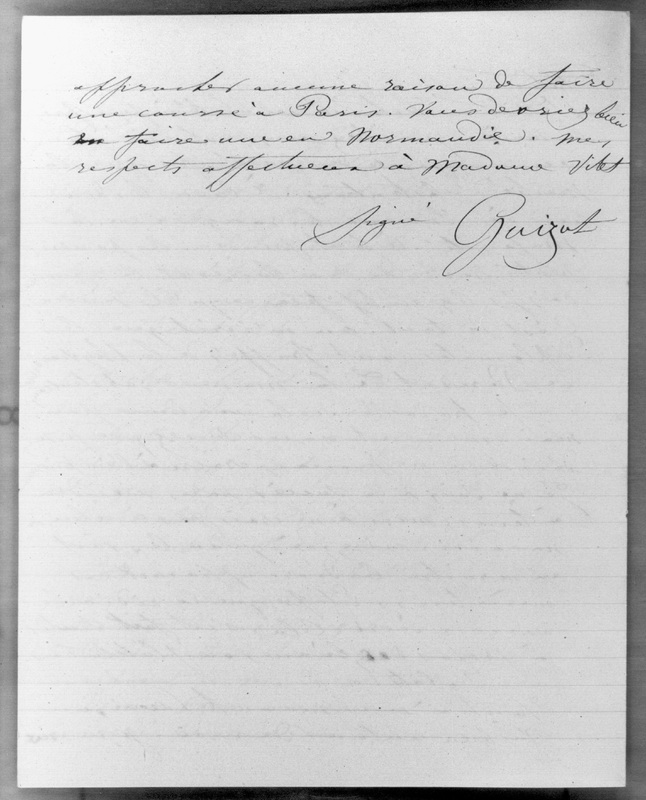 approcher aucune raison de faire
une course à Paris. Vous devriez bien
en faire une en Normandie. Mes
respects affectueux à Madame Vitet
Signé Guizot